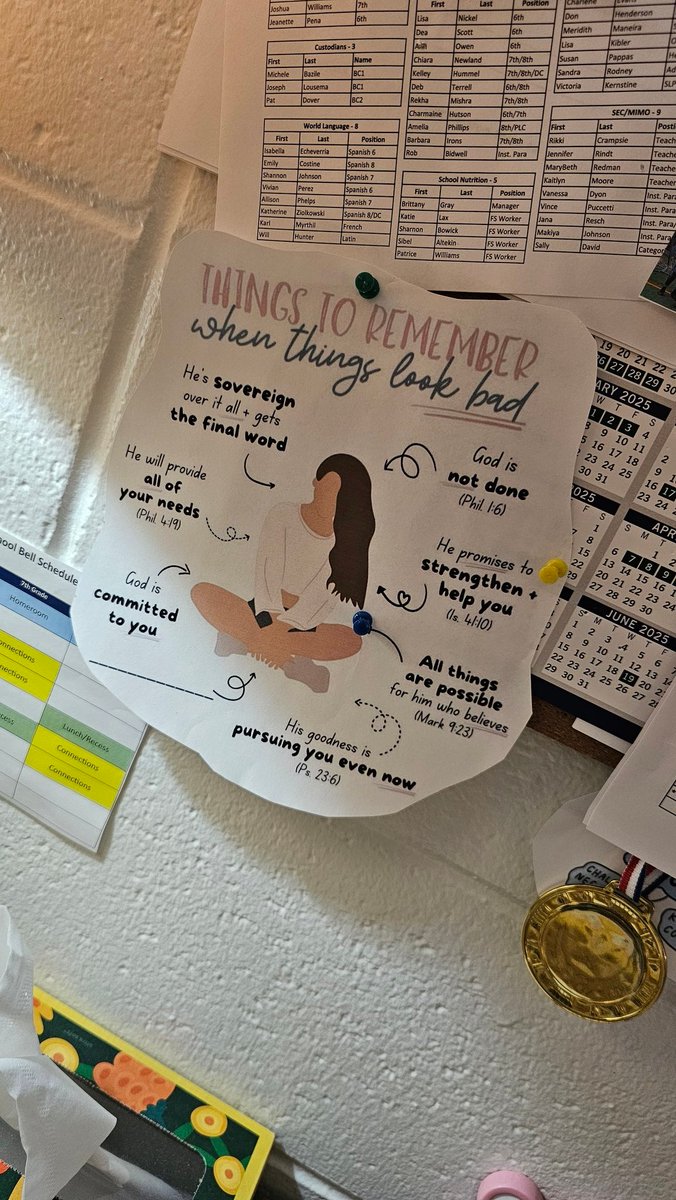 Joshua Williams 7th
Jeanette Pena 6th
Custodians - 3
First Last Name
Michele Bazile BC1
Joseph Lousema BC1
Pat Dover BC2
World Language - 8
First Last Position
Isabella Echeverria Spanish 6
Emily Costine Spanish 8
Shannon Johnson Spanish 7
Vivian Perez Spanish 6
Allison Phelps Spanish 7
Katherine Ziolkowski Spanish 8/DC
Kari Myrthil French
Will Hunter Latin
First Last Position
Lisa Nickel 6th
Dea Scott 6th
Owen 6th
Chiara Newland 7th/8th
Kelley Hummel 7th/8th/DC
Deb Terrell 6th/8th
Rekha Mishra 7th/8th
Charmaine Hutson 6th/7th
Amelia Phillips 8th/PLC
Barbara Irons 7th/8th
Rob Bidwell Inst. Para
School Nutrition - 5
First Last Position
Brittany Gray Manager
Katie Lax FS Worker
Sharron Bowick FS Worker
Sibel Altekin FS Worker
Patrice Williams FS Worker
Charlene Evans
Don Henderson
Meridith Maneira
Lisa Kibler
Susan Pappas
Sandra Rodney
Victoria Kernstine SLP
SEC/MIMO - 9
First Last
Rikki Crampsie
Jennifer Rindt
MaryBeth Redman
Kaitlyn Moore
Vanessa Dyon Inst. Para
Vince Puccetti Inst. Para
Jana Resch Inst. Para
Makiya Johnson Inst. Para
Sally David
THINGS TO REMEMBER
when things look bad
He's sovereign
over it all + gets
the final word
He will provide
all of
your needs
(Phil. 4:19)
God is
committed
to you
God is
not done
(Phil. 1:6)
He promises to
strengthen +
help you
(Is. 41:10)
All things
are possible
for him who believes
(Mark 9:23)
His goodness is
pursuing you even now
(Ps. 23:6)
Bell Schedule
7th Grade
Homeroom
Connections
Connections
Lunch/Recess
Connections
Connections
19 20 21 22
26 27 28 29 30
2025
W T F S
1 2 3 4
8 9 10 11
2025
JUNE 2025